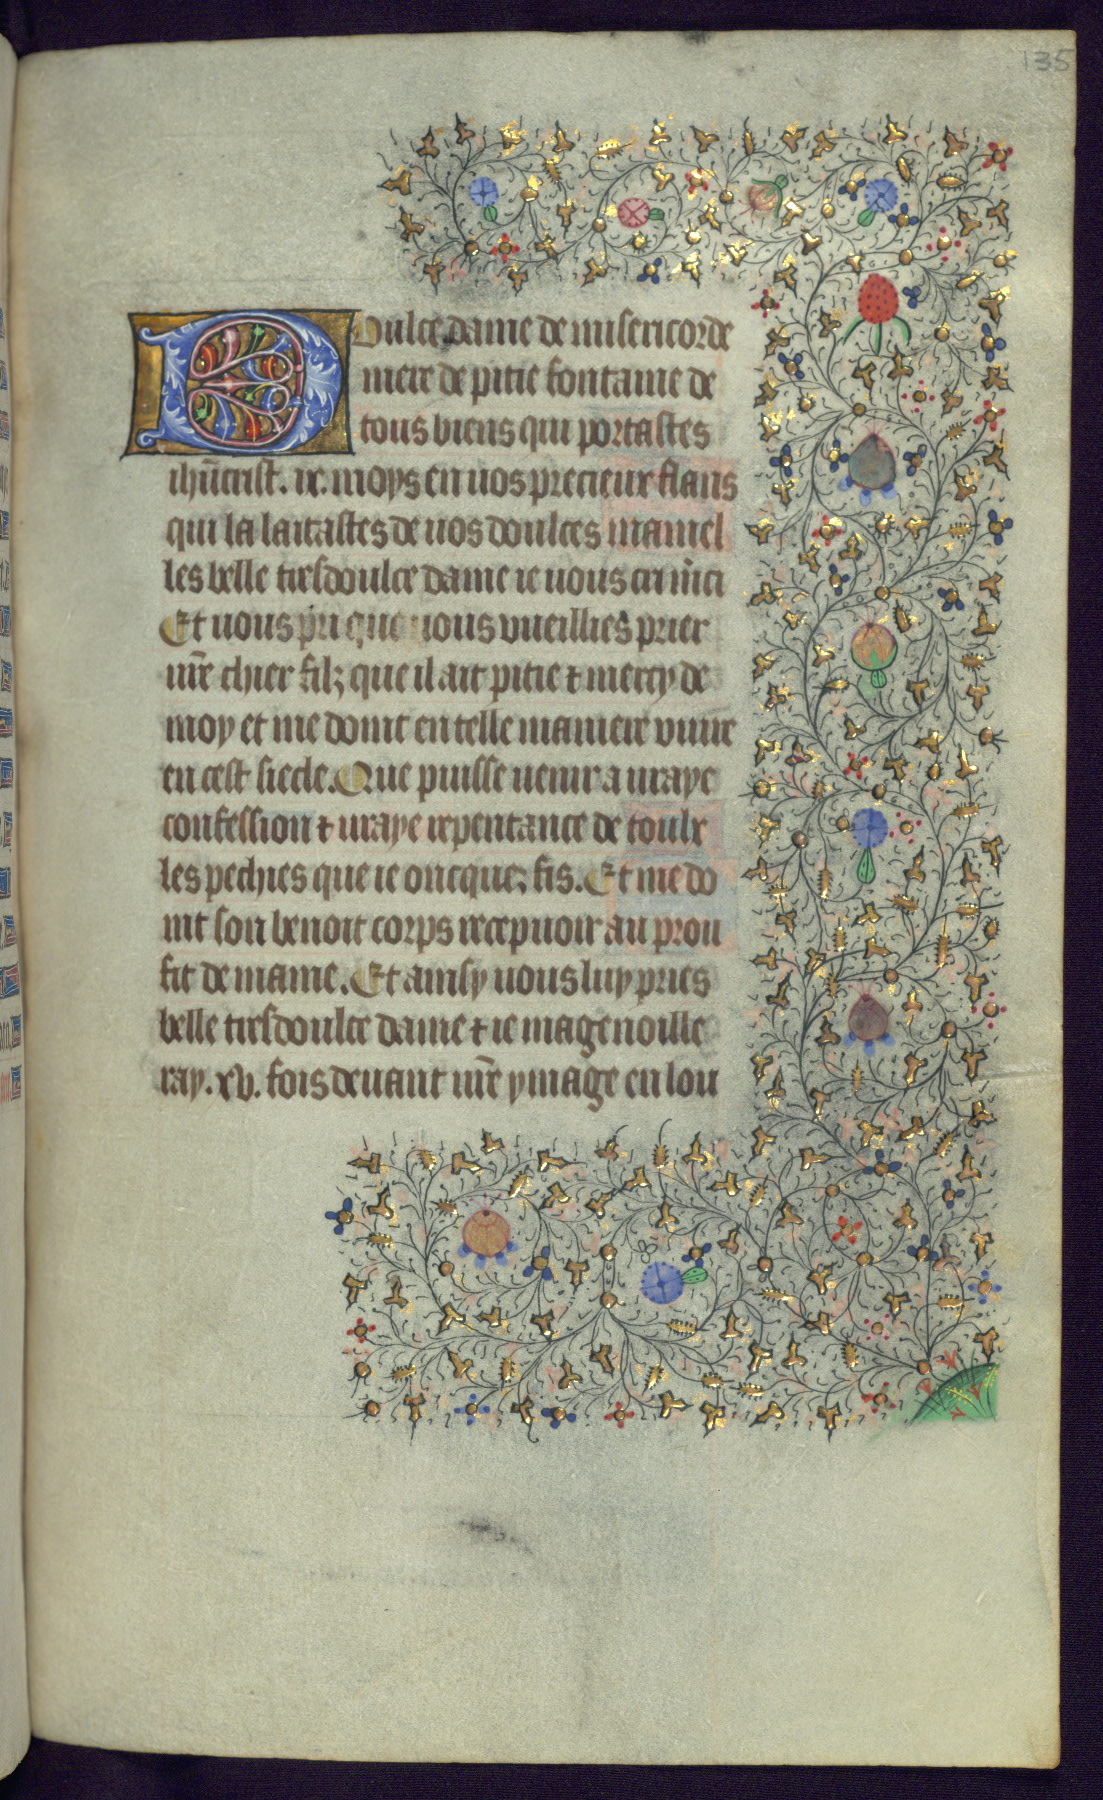 135
Doulce dame de misericorde
mere de pitie fontaine de
tous biens qui portastes
ihūcrist. ix. moys en uos precieux flans
qui la laitastes de uos doulces mamel
les belle tresdoulce dame ie uous cri m̄ci
Et uous pri que uous vueillies prier
ur̄e chier filz que il ait pitie ⁊ mercy de
moy et me doint en telle maniere viure
en cest siecle. Que puisse uenir a uraye
confession ⁊ uraye repentance de toulx
les pechies que ie oncques fis. Et me do
int son benoit corps recepuoir au prou
fit de mame. Et ainsy uous luy pries
belle tresdoulce dame ⁊ ie magenoille
ray. xv. fois deuant ur̄e ymage en lou